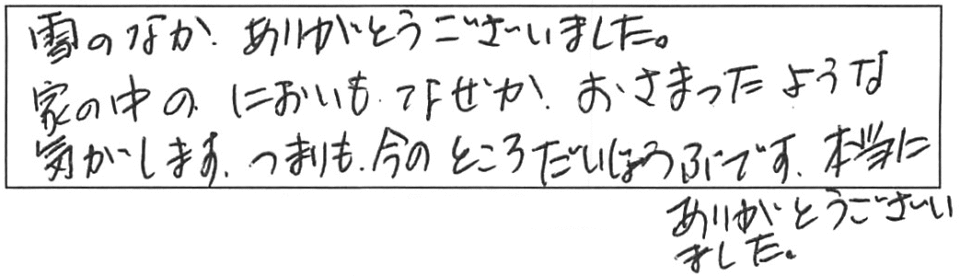 雪のなか、ありがとうございました。
家の中の、においも、なぜか、おさまったような
気がします、つまりも、今のところだいじょうぶです、本当に
ありがとうござい
ました。